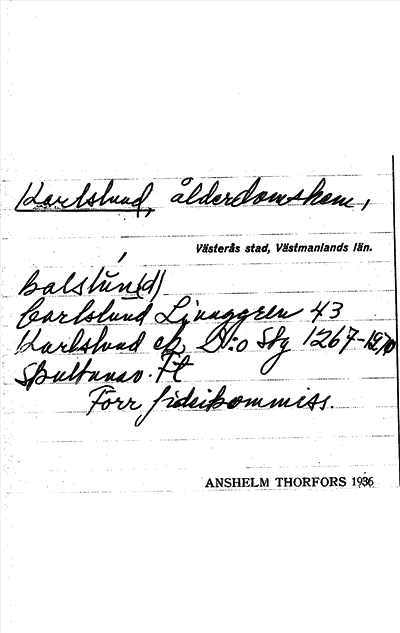 Karlslund, ålderdomshem,
Västerås stad, Västmanlands län.
kalslún(d)
Carlslund Ljunggren 43
Karlslund ek D:o Sky 1267-1270
Ft
Förr fideikommiss.
ANSHELM THORFORS 1936